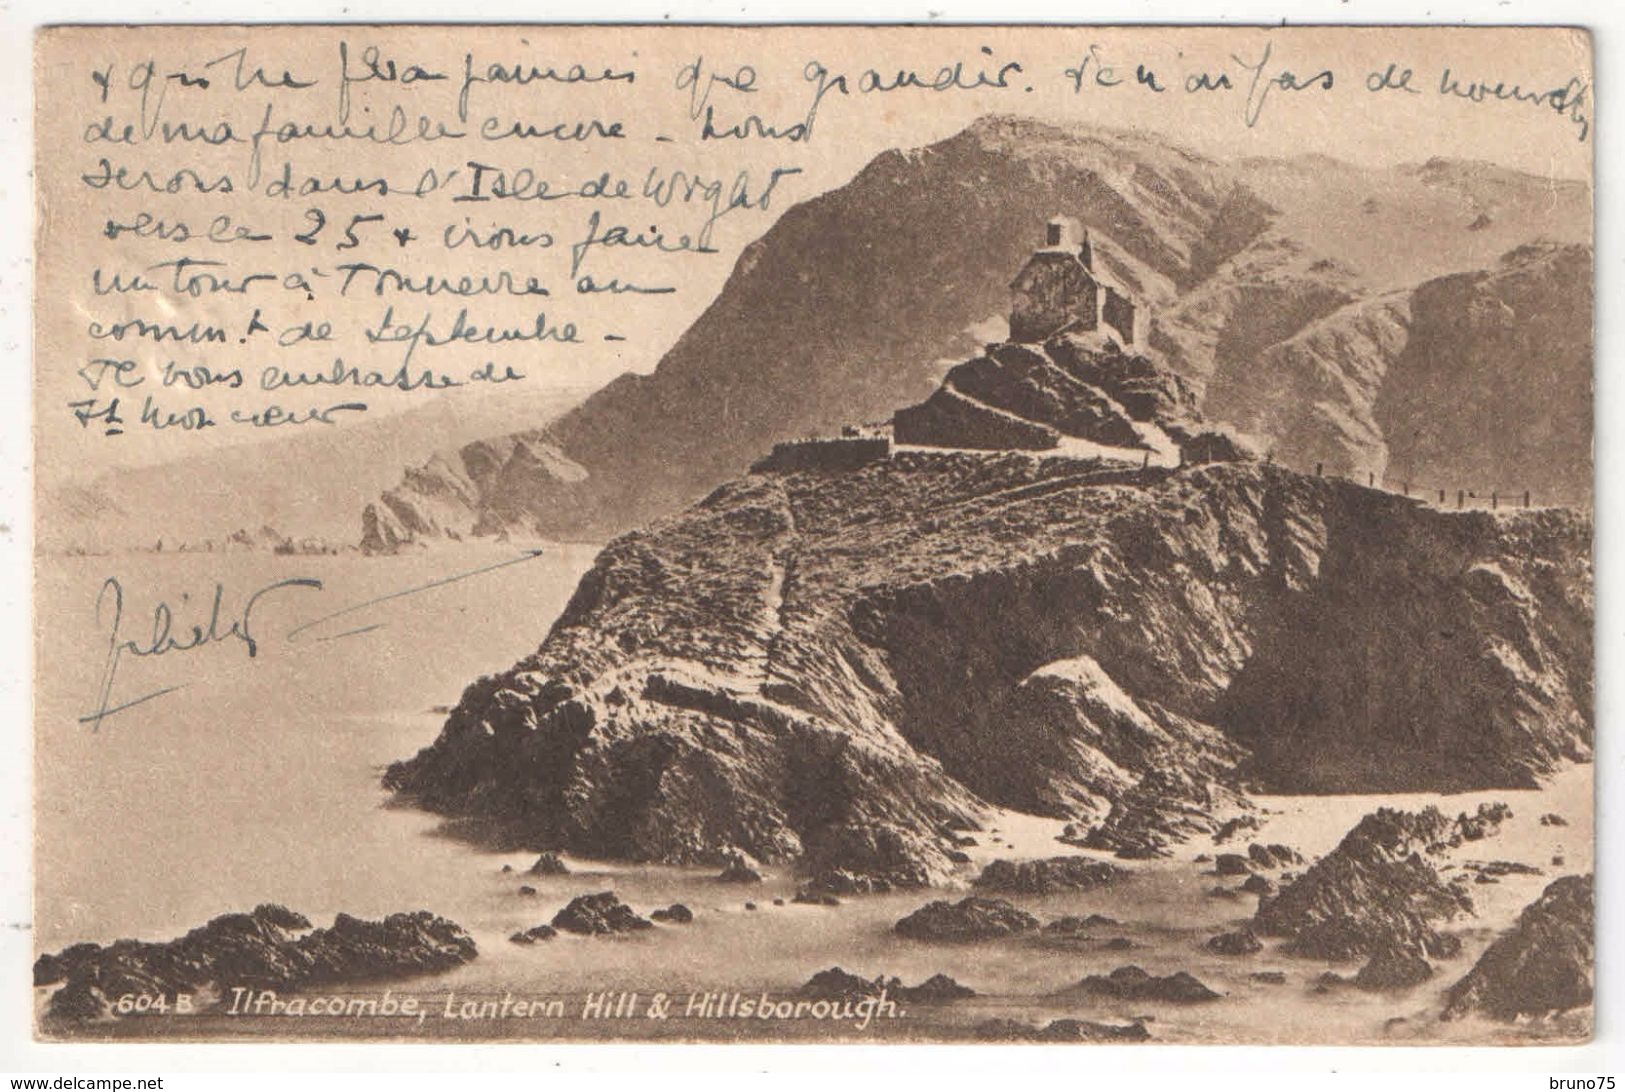 & qui ne fera jamais que grandir. Je n'ai pas de nouvelles
de ma famille encore - Nous
serons dans l'Isle de Wight
vers le 25 & irons faire
un tour à Tonnerre au
comm.t de Septembre -
Je vous embrasse de
tt mon cœur
Juliette
604 B Ilfracombe, Lantern Hill & Hillsborough.
http://www.delcampe.net
bruno75